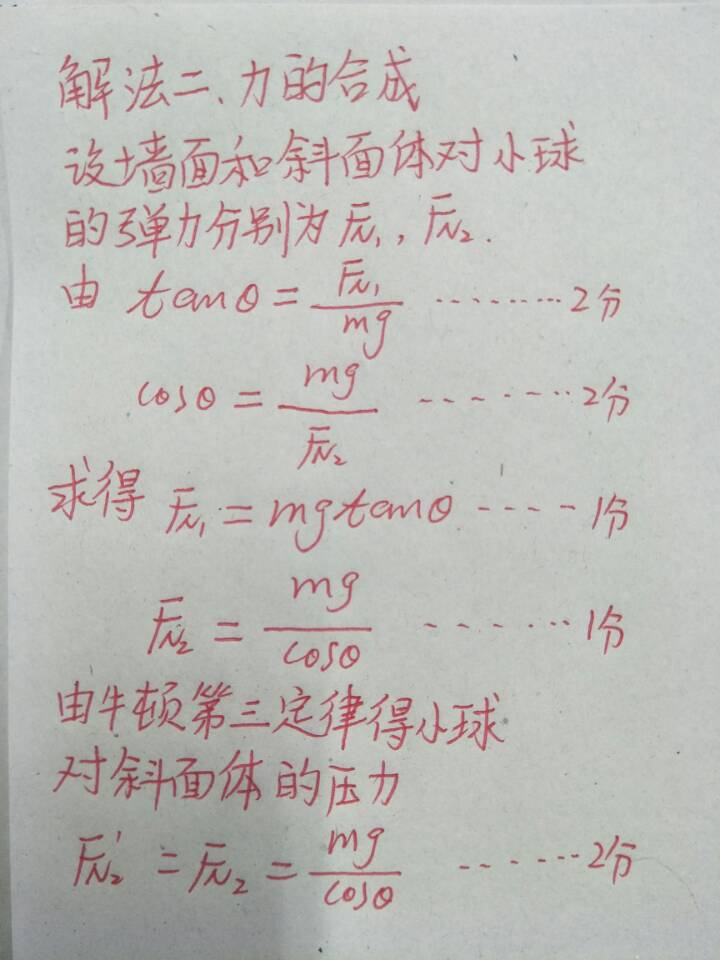 解法二、力的合成
设墙面和斜面体对小球
的弹力分别为F_{N1}, F_{N2}.
由 tanθ = \frac{F_{N1}}{mg} ········· 2分
cosθ = \frac{mg}{F_{N2}} ········· 2分
求得 F_{N1} = mgtanθ ····· 1分
F_{N2} = \frac{mg}{cosθ} ········ 1分
由牛顿第三定律得小球
对斜面体的压力
F_{N2}' = F_{N2} = \frac{mg}{cosθ} ········ 2分